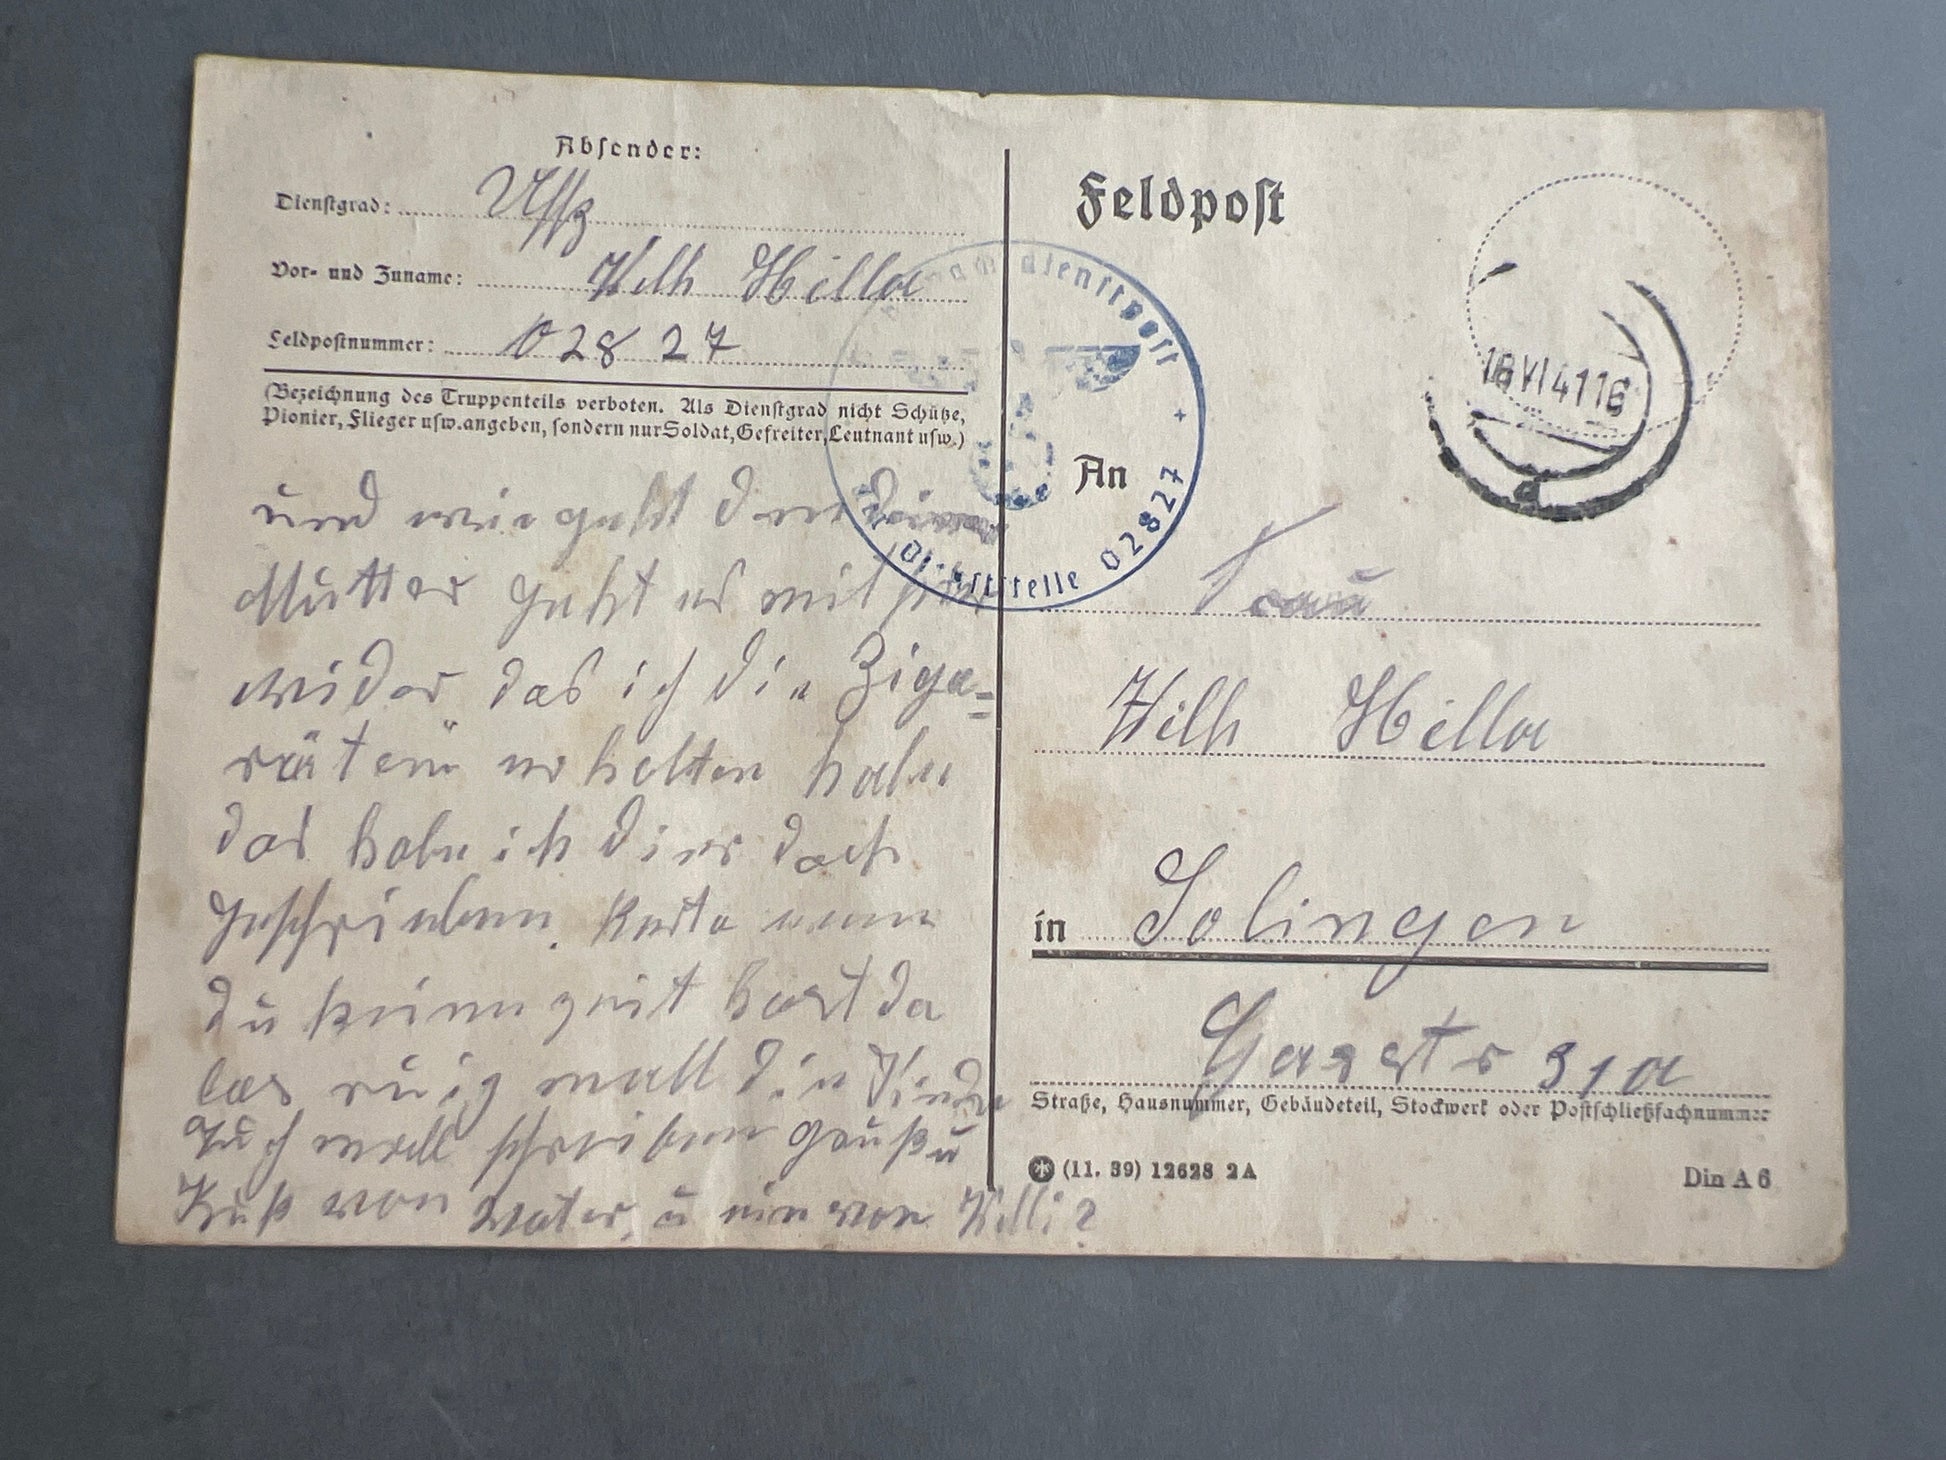 Absender:
Dienstgrad: Uffz
Vor- und Zuname: Wilh Hilla
Feldpostnummer: 02827
(Bezeichnung des Truppenteils verboten. Als Dienstgrad nicht Schütze,
Pionier, Flieger usw. angeben, sondern nur Soldat, Gefreiter, Leutnant usw.)
und wie geht
Mutter geht es mit
wider das ich die Ziga=
räten erhalten habe
das habe ich dier doch
geschrieben. Karta wenn
du keine zeit hast da
las ruig mall die Kinder
auch mall schreiben gruß u
Kuß von Vater, u ein von Willi
Feldpost
18 VI 41 16
Dienstpost
Dienststelle 02827
An
Frau
Wilh Hilla
in Solingen
Gasstr 31a
Straße, Hausnummer, Gebäudeteil, Stockwerk oder Postschließfachnummer
(11. 39) 12628 2A
Din A 6